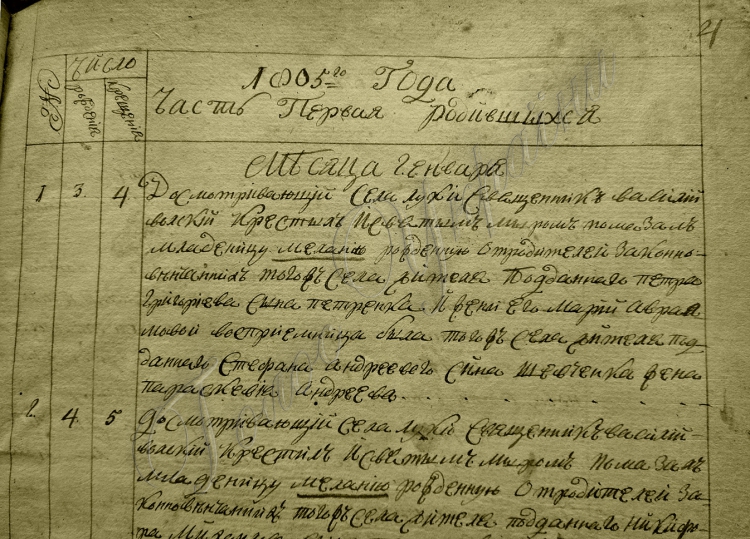 21
№
число
рожденiя
крещенiя
1805го Года
Часть Первая родившихся
Мѣсяца Генваря
1 3. 4. Досмотривающiй села луки Священникъ василiй
вьскiй крестилъ и святымъ миромъ помазалъ
младеницу меланiю рожденную отродителей законно-
вѣнчанныхъ тогожъ села жителя подданнаго петра
григорiева сына петренка и жени его Марiи Аврам-
мовой воспрiемница была тогожъ села жителя под-
даннаго Стефана андреевого сина шевченка жена
параскевiя андреева . . . . . . .
2. 4. 5 досмотривающiй села луки Священникъ василiй-
вьскiй крестилъ и святымъ миромъ помазалъ
младеницу меланiю рожденную отродителей за-
конновѣнчанныхъ тогожъ села жителя подданнаго никифо-
ра